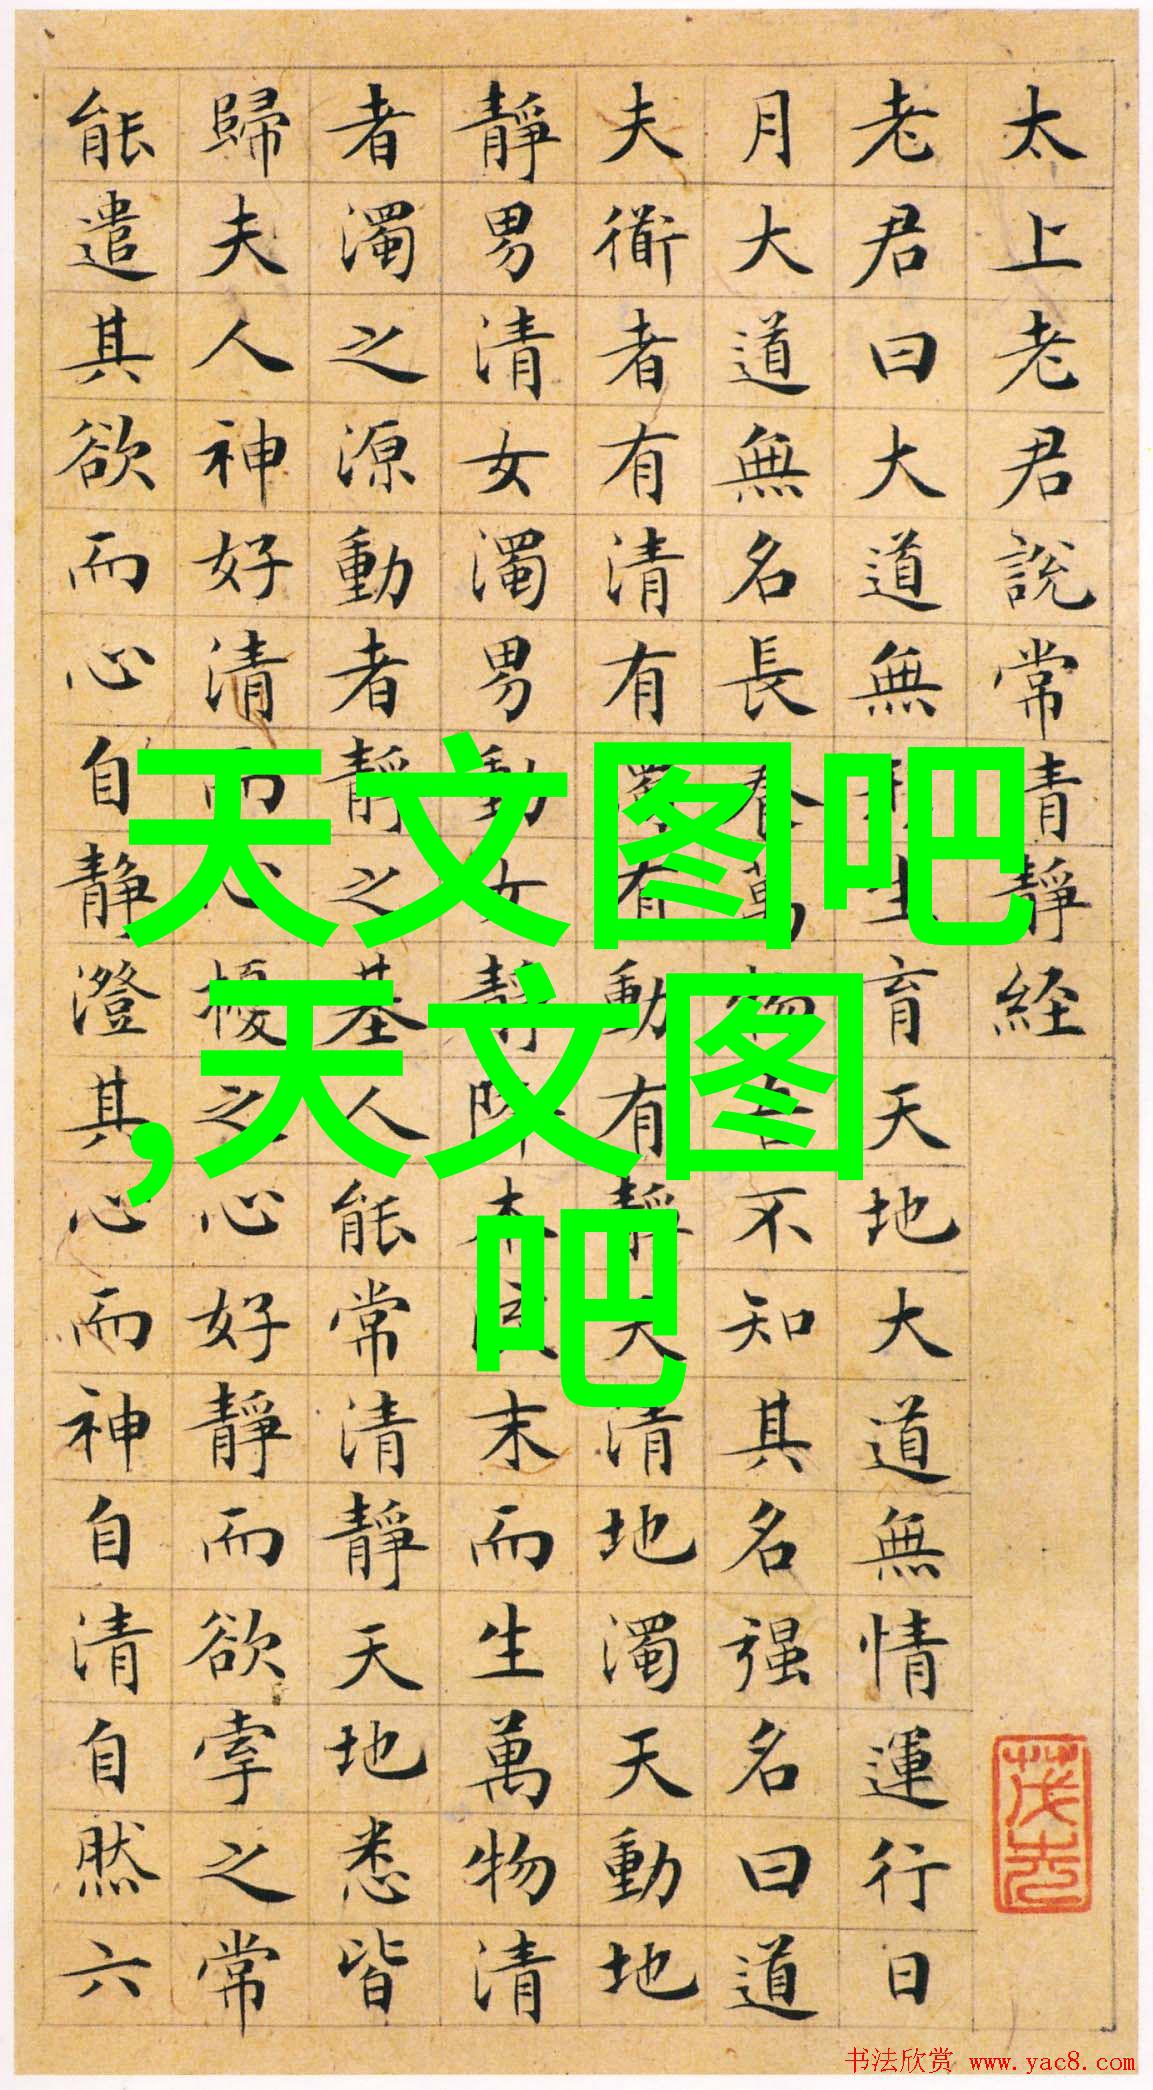 太上老君說常清靜経
老君曰大道無形生育天地大道無情運行日
月大道無名長養萬物吾不知其名强名曰道
夫衜者有清有濁有動有靜天清地濁天動地
靜男清女濁男動女靜降本流末而生萬物清
者濁之源動者靜之基人能常清靜天地悉皆
歸夫人神好清而心擾之心好靜而欲牽之常
能遣其欲而心自静澄其心而神自清自然六
天文图吧
,天文图
吧
书法欣赏 www.yac8.com